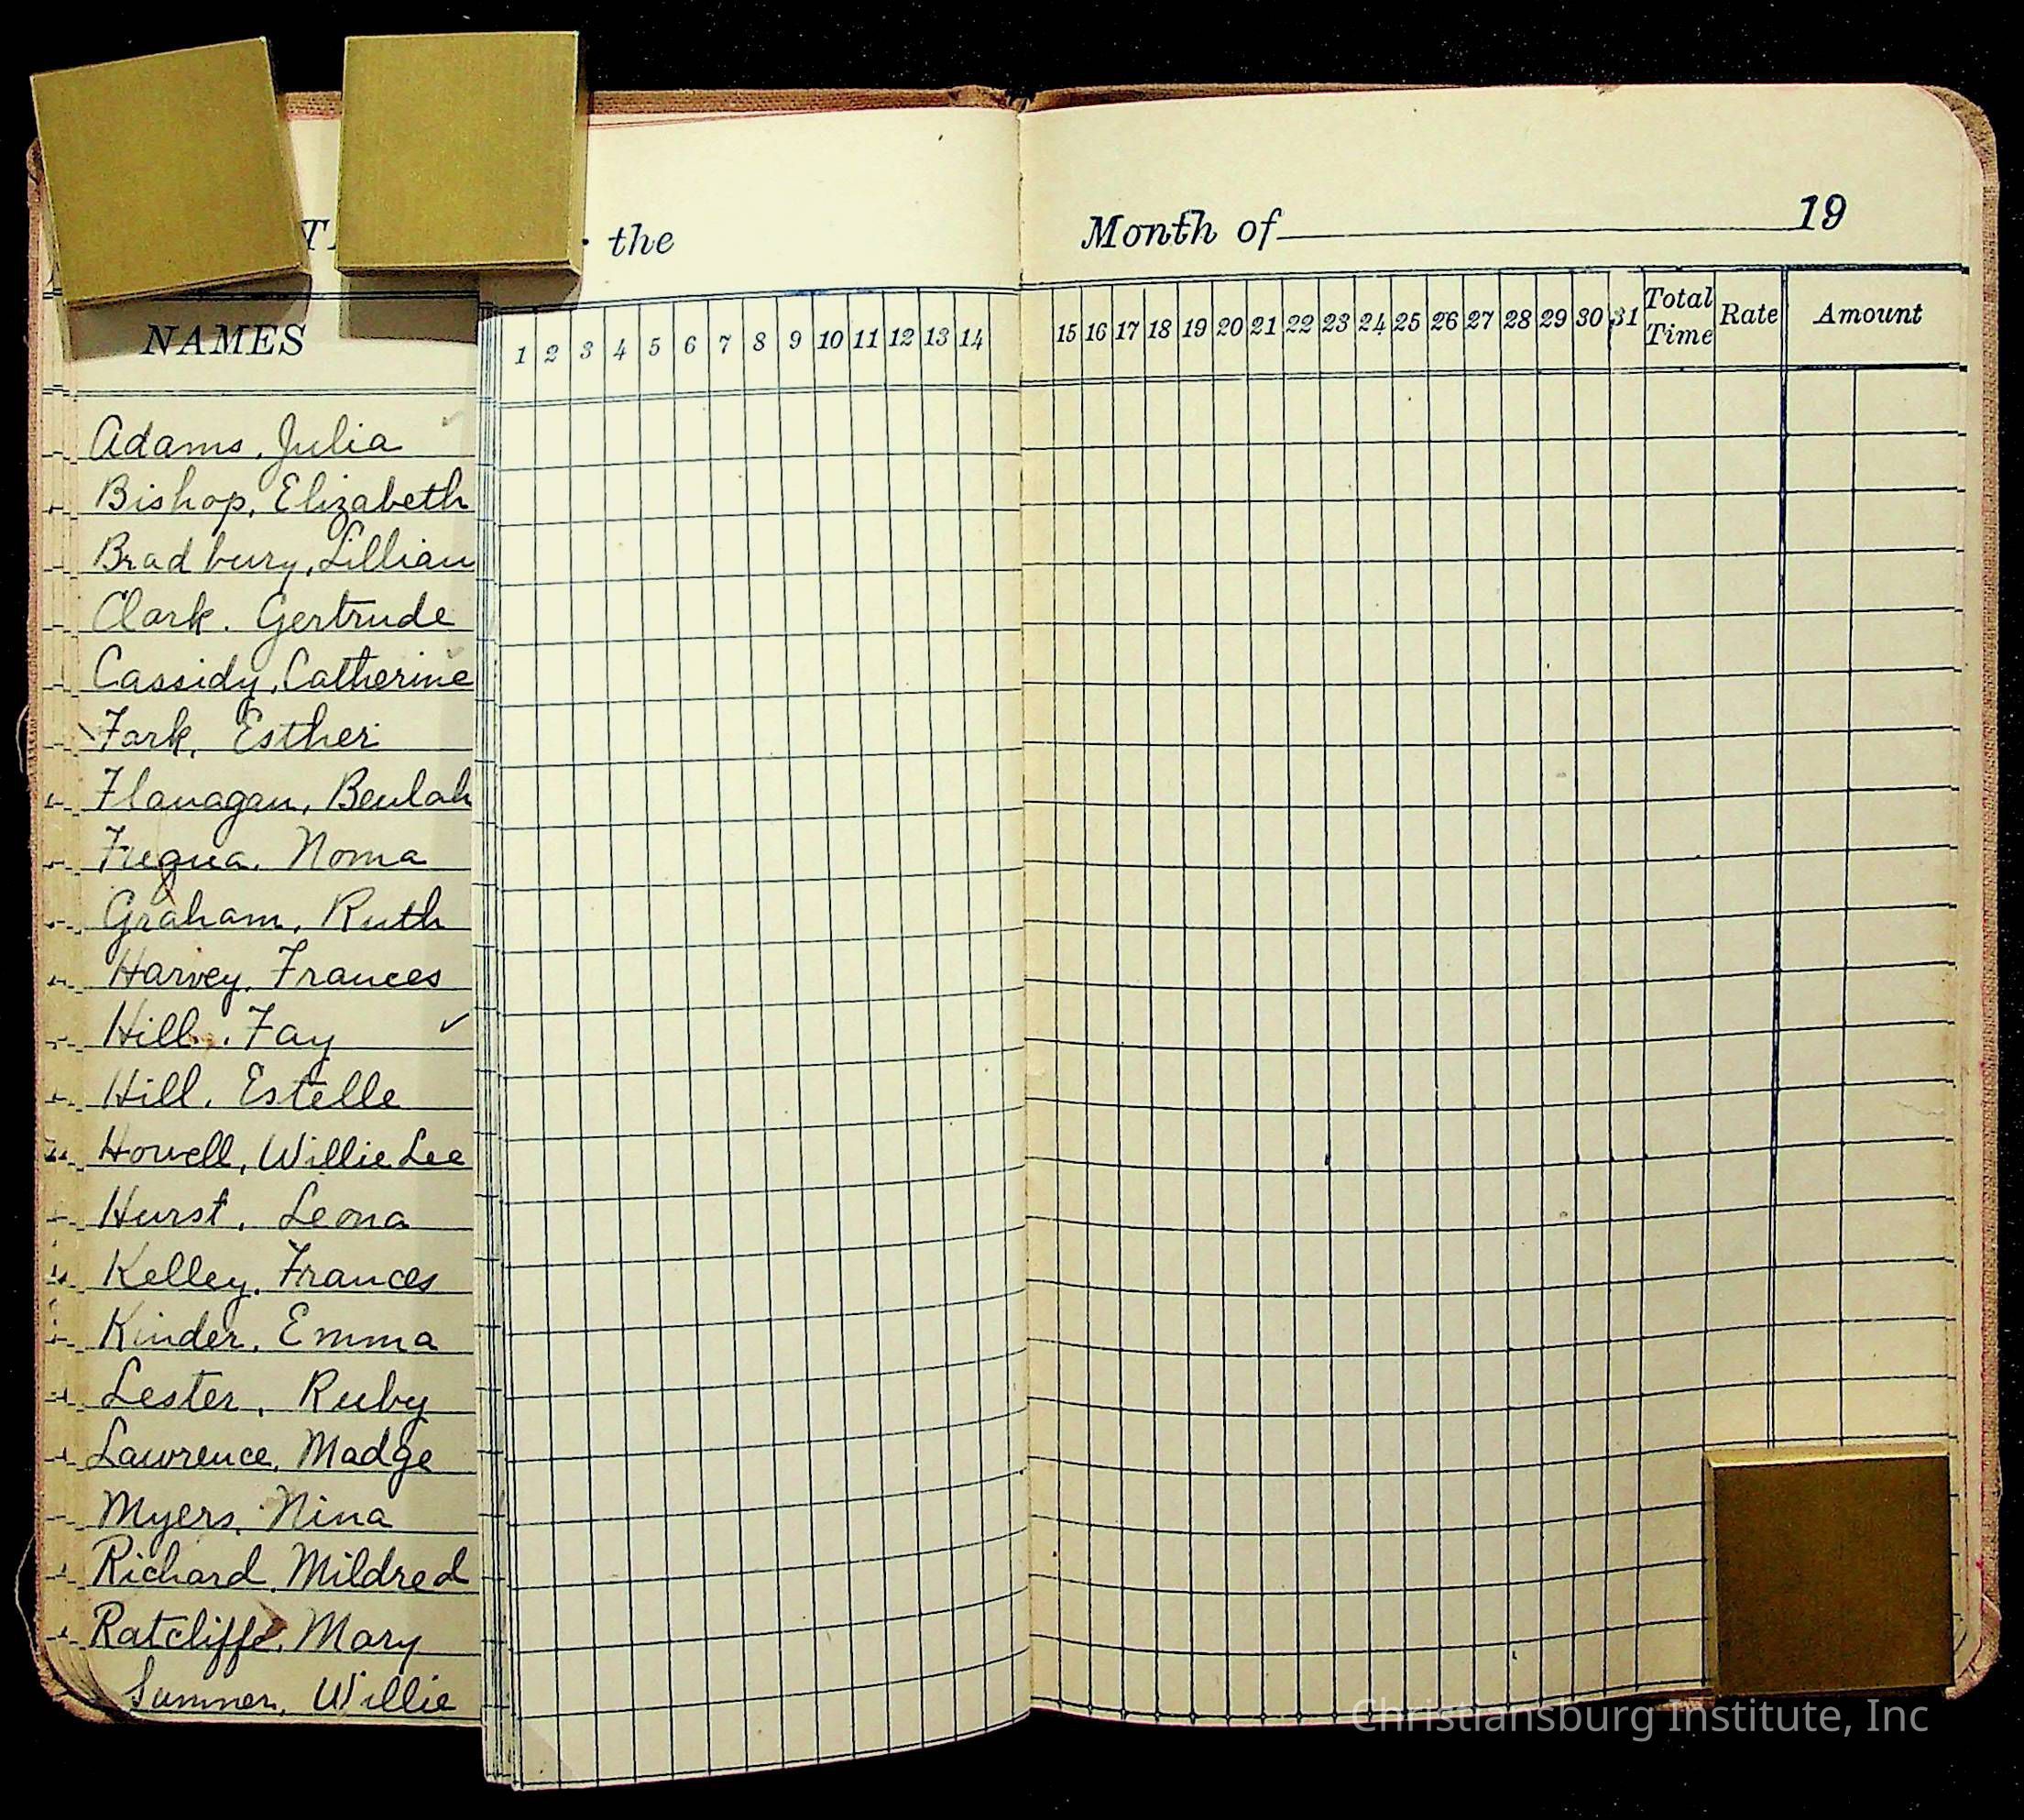 the
Month of 19
NAMES
1 2 3 4 5 6 7 8 9 10 11 12 13 14
15 16 17 18 19 20 21 22 23 24 25 26 27 28 29 30 31 Total Time Rate Amount
Adams, Julia
Bishop, Elizabeth
Bradbury, Lillian
Clark. Gertrude
Cassidy, Catherine
Fark, Esther
Flanagan, Beulah
Fuqua, Noma
Graham, Ruth
Harvey, Frances
Hill, Fay ✓
Hill, Estelle
Howell, Willie Lee
Hurst, Leona
Kelley, Frances
Kinder, Emma
Lester, Ruby
Lawrence, Madge
Myers, Nina
Richard, Mildred
Ratcliffe, Mary
Sumner, Willie
Christiansburg Institute, Inc